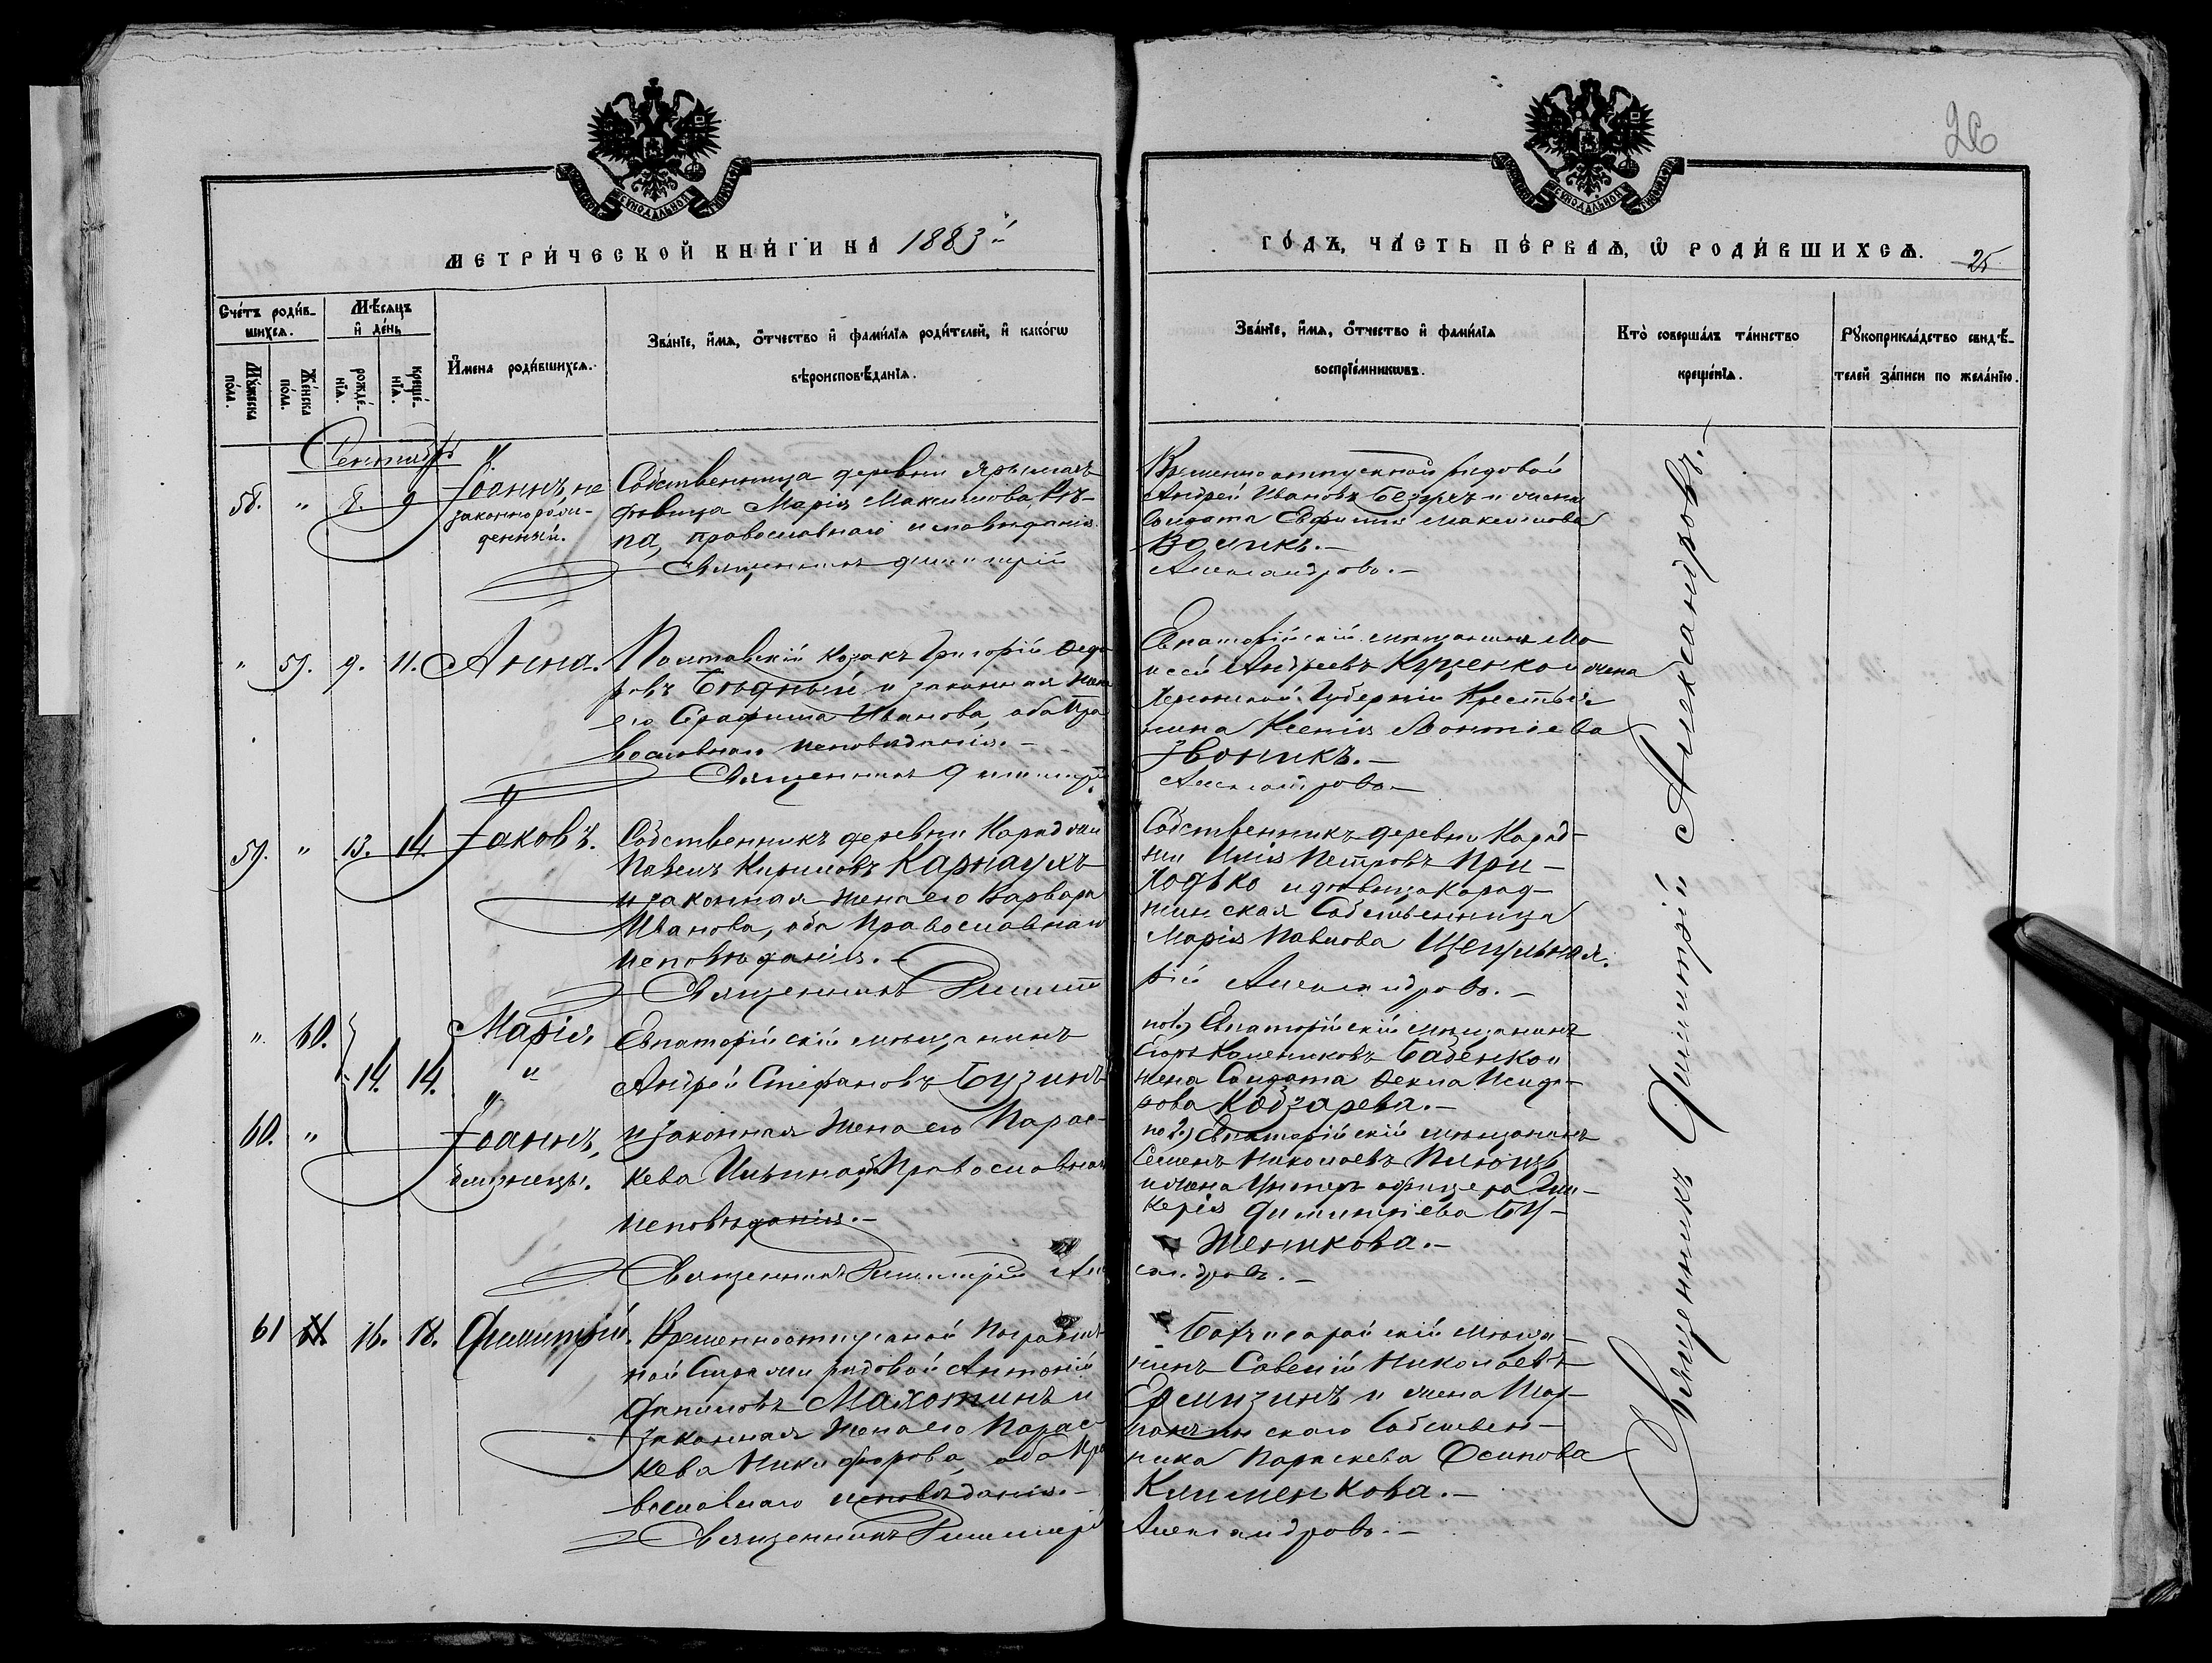 26
МЕТРИ́ЧЕСКОЙ КНИ́ГИ НА 1883й
ГО́ДЪ, ЧА́СТЬ ПЕ́РВАѦ, Ѿ РОДИ́ВШИХСѦ.
25
Сче́тъ роди́в-
шихсѧ.
Мѣ́сѧцъ
и҆ де́нь
Му́жеска
по́ла.
Же́нска
по́ла.
рожде́-
нїѧ.
креще́-
нїѧ.
И҆мена̀ роди́вшихсѧ.
Зва́нїе, и҆́мѧ, о҆́тчество и҆ фами́лїѧ роди́телей, и҆ како́гѡ
вѣроисповѣ́данїѧ.
Зва́нїе, и҆́мѧ, о҆́тчество и҆ фами́лїѧ
воспрїе́мникѡвъ.
Кто̀ соверша́лъ та́инство
креще́нїѧ.
Рꙋкоприкла́дство свидѣ́-
телей за́писи по жела́нїю.
Сентябрь
58. " 8. 9
Іоаннъ, не
законнорож-
денный.
Собственница деревни
Марія Максимова
па, православнаго исповѣданія
Священникъ Димитрій
Временно отпускной рядовой
Андрей Ивановъ и жена
солдата Евфимія Максимова
Воликъ.—
Александровъ.—
" 59. 9. 11. Анна.
Полтавскій козакъ Григорій Ѳедо
ровъ Бѣдный и законная жена
его Серафима Иванова, оба Пра
вославнаго исповѣданія.—
Священникъ Димитрій
Евпаторійскій мѣщанинъ Мо
исей Андреевъ Куценко и жена
Херсонской Губерніи Крестья
нина Ксенія Леонтіева
Звоникъ.—
Александровъ.—
59. " 13. 14. Іаковъ.
Собственникъ деревни Караджи
Павелъ Кириловъ Карнаухъ
и законная жена его Варвара
Иванова, оба Православнаго
исповѣданія.—
Священникъ Димит
Собственникъ деревни Карад-
жи Илія Петровъ При-
ходько и дѣвица Карад-
жинская Собственница
Марія Павлова
рій Александровъ.—
" 60.
14. 14.
60. "
Марія
и
Іоаннъ,
близнецы.
Евпаторійскій мѣщанинъ
Андрей Стефановъ Бузинъ
и законная жена его Парас-
кева Ильина, Православнаго
исповѣданія.—
Священникъ Димитрій Алек
по 1.) Евпаторійскій мѣщанинъ
Егоръ Бабенко и
жена Солдата Ѳекла Исидо-
рова Кобзарева.—
по 2.) Евпаторійскій мѣщанинъ
Семенъ Николаевъ
и жена Унтеръ офицера Гли-
керія Димитріева Бу-
Женикова.—
сандровъ.—
61 61 16. 18. Димитрій.
Временноотпускной Погранич
ной Стражи рядовой Антоній
Даниловъ Махотинъ и
законная жена его Парас-
кева Никифорова, оба Пра
вославнаго исповѣданія.—
Священникъ Димитрій
Бахчисарайскій мѣща-
нинъ Савелій Николаевъ
Ермизинъ и жена
скаго Собствен-
ника Параскева Осипова
Клименкова.—
Александровъ.—
Священникъ Димитрій Александровъ.—